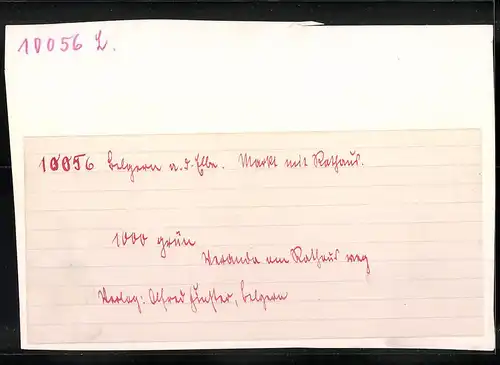 10056 L.
10056 Belgern a.d. Elbe. Markt mit Rathaus.
1000 grün
Veranda am Rathaus weg
Verlag: Alfred Günster, Belgern